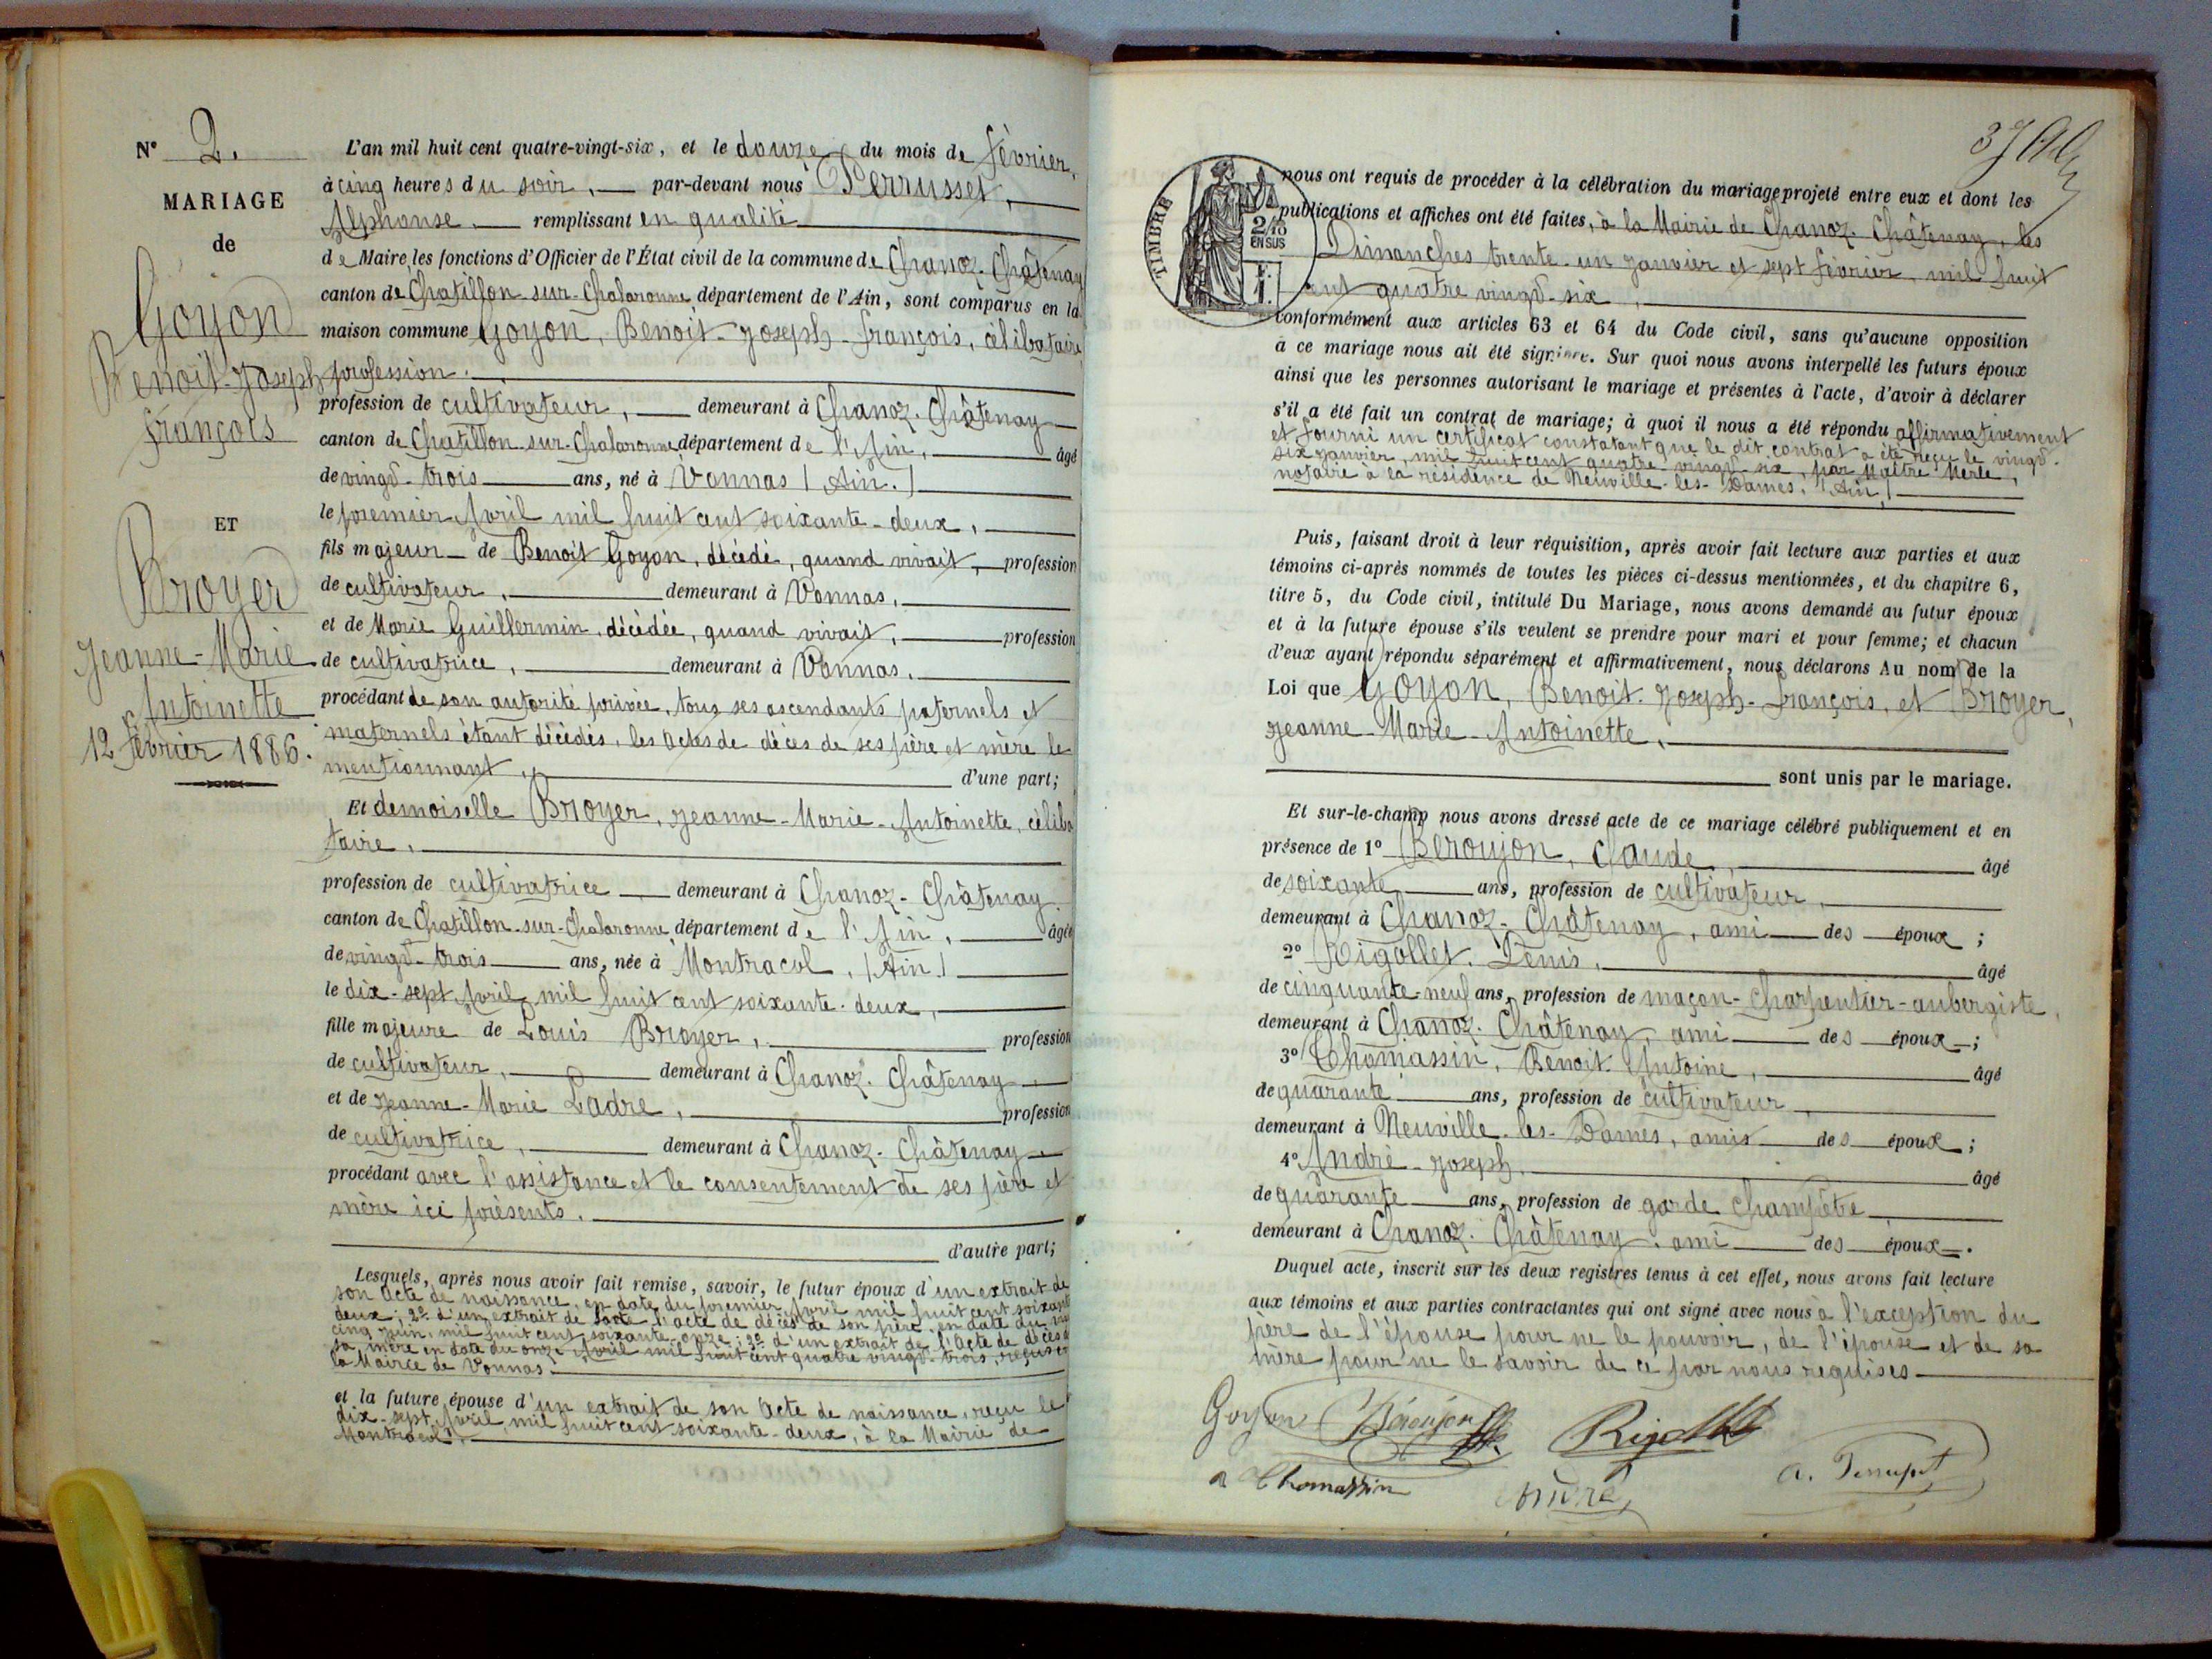 N° 2.
MARIAGE
de
Goyon
Benoit-Joseph
françois
ET
Broyer
Jeanne-Marie
Antoinette
12 février 1886.
L'an mil huit cent quatre-vingt-six, et le douze du mois de février,
à cinq heures du soir, par-devant nous Perrusset,
Alphonse remplissant en qualité
de Maire les fonctions d'Officier de l'État civil de la commune de Chanoz-Châtenay
canton de Chatillon-sur-Chalaronne département de l'Ain, sont comparus en la
maison commune Goyon, Benoit-Joseph-françois, célibataire
profession.
profession de cultivateur, demeurant à Chanoz-Châtenay
canton de Chatillon-sur-Chalaronne département de l'Ain, âgé
de vingt-trois ans, né à Vonnas (Ain.)
le premier Avril mil huit cent soixante-deux,
fils majeur de Benoit Goyon, décédé, quand vivait, profession
de cultivateur, demeurant à Vonnas,
et de Marie Guillermin, décédée, quand vivait, profession
de cultivatrice, demeurant à Vonnas,
procédant de son autorité privée, tous ses ascendants paternels et
maternels étant décédés, les actes de décès de ses père et mère le
mentionnant, d'une part;
Et demoiselle Broyer, Jeanne-Marie-Antoinette, céliba
taire,
profession de cultivatrice demeurant à Chanoz-Châtenay
canton de Chatillon-sur-Chalaronne département de l'Ain, âgée
de vingt-trois ans, née à Montracol, (Ain)
le dix-sept Avril mil huit cent soixante-deux,
fille majeure de Louis Broyer, profession
de cultivateur, demeurant à Chanoz-Châtenay
et de Jeanne-Marie Ladre, profession
de cultivatrice, demeurant à Chanoz-Châtenay
procédant avec l'assistance et le consentement de ses père et
mère ici présents.
d'autre part;
Lesquels, après nous avoir fait remise, savoir, le futur époux d'un extrait de
son acte de naissance, en date du premier Avril mil huit cent soixante
deux; 2° d'un extrait de l'acte de décès de son père, en date du
cinq Juin, mil huit cent soixante-onze; 3° d'un extrait de l'Acte de décès de
sa mère en date du onze Avril mil huit cent quatre vingt-trois, reçus à
la Mairie de Vonnas.
et la future épouse d'un extrait de son Acte de naissance, reçu le
dix-sept Avril, mil huit cent soixante-deux, à la Mairie de
Montracol,
37
TIMBRE
2/10
EN SUS
nous ont requis de procéder à la célébration du mariage projeté entre eux et dont les
publications et affiches ont été faites, à la Mairie de Chanoz-Châtenay, les
Dimanches trente-un janvier et sept février mil huit
cent quatre vingt-six,
conformément aux articles 63 et 64 du Code civil, sans qu'aucune opposition
à ce mariage nous ait été signifiée. Sur quoi nous avons interpellé les futurs époux
ainsi que les personnes autorisant le mariage et présentes à l'acte, d'avoir à déclarer
s'il a été fait un contrat de mariage; à quoi il nous a été répondu affirmativement
et fourni un certificat constatant que le dit contrat a été reçu le vingt-
six Janvier, mil huit cent quatre-vingt-six, par Maître Merle,
notaire à la résidence de Neuville-les-Dames, (Ain)
Puis, faisant droit à leur réquisition, après avoir fait lecture aux parties et aux
témoins ci-après nommés de toutes les pièces ci-dessus mentionnées, et du chapitre 6,
titre 5, du Code civil, intitulé Du Mariage, nous avons demandé au futur époux
et à la future épouse s'ils veulent se prendre pour mari et pour femme; et chacun
d'eux ayant répondu séparément et affirmativement, nous déclarons Au nom de la
Loi que Goyon, Benoit-Joseph-françois, et Broyer,
Jeanne-Marie-Antoinette,
sont unis par le mariage.
Et sur-le-champ nous avons dressé acte de ce mariage célébré publiquement et en
présence de 1° Beroujon, Claude, âgé
de soixante ans, profession de cultivateur,
demeurant à Chanoz-Châtenay, ami des époux;
2° Rigollet, Denis, âgé
de cinquante-neuf ans, profession de maçon-Charpentier-aubergiste,
demeurant à Chanoz-Châtenay, ami des époux;
3° Thomassin, Benoit-Antoine, âgé
de quarante ans, profession de cultivateur,
demeurant à Neuville-les-Dames, amis des époux;
4° André-Joseph, âgé
de quarante ans, profession de garde Champêtre
demeurant à Chanoz-Châtenay, ami des époux.
Duquel acte, inscrit sur les deux registres tenus à cet effet, nous avons fait lecture
aux témoins et aux parties contractantes qui ont signé avec nous à l'exception du
père de l'épouse pour ne le pouvoir, de l'épouse et de sa
mère pour ne le savoir de ce par nous requises
Goyon Béroujon Rigollet
Thomassin André A. Perrusset